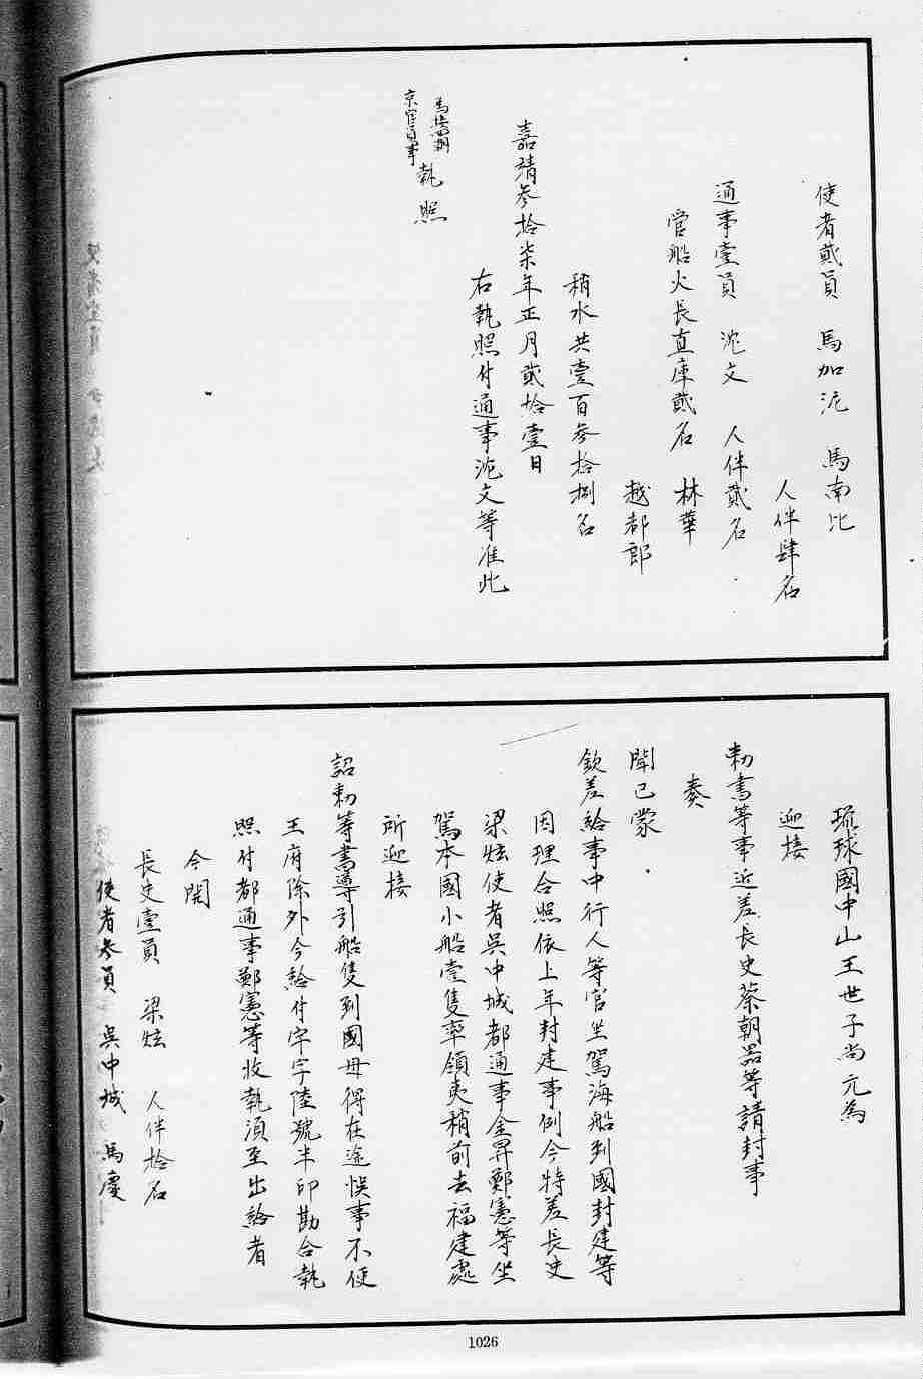 使者貳員　馬加泥　馬南比
人伴肆名
通事壹員　沈文　人伴貳名
管船火長直庫貳名　林華
越都郎
稍水共壹百參拾捌名
嘉靖參拾柒年正月貳拾壹日
右執照付通事沈文等准此
執照
琉球國中山王世子尚元為
迎接
勅書等事近差長史蔡朝器等請封事
奏
聞已蒙
欽差給事中行人等官坐駕海船到國封建等
因理合照依上年封建事例今特差長史
梁炫使者吳中城都通事金昇鄭憲等坐
駕本國小船壹隻率領夷稍前去福建處
所迎接
詔勅等書導引船隻到國毋得在途悞事不便
王府除外今給付字字陸號半印勘合執
照付都通事鄭憲等收執須至出給者
今開
長史壹員　梁炫　人伴拾名
使者參員　吳中城　馬慶
1026